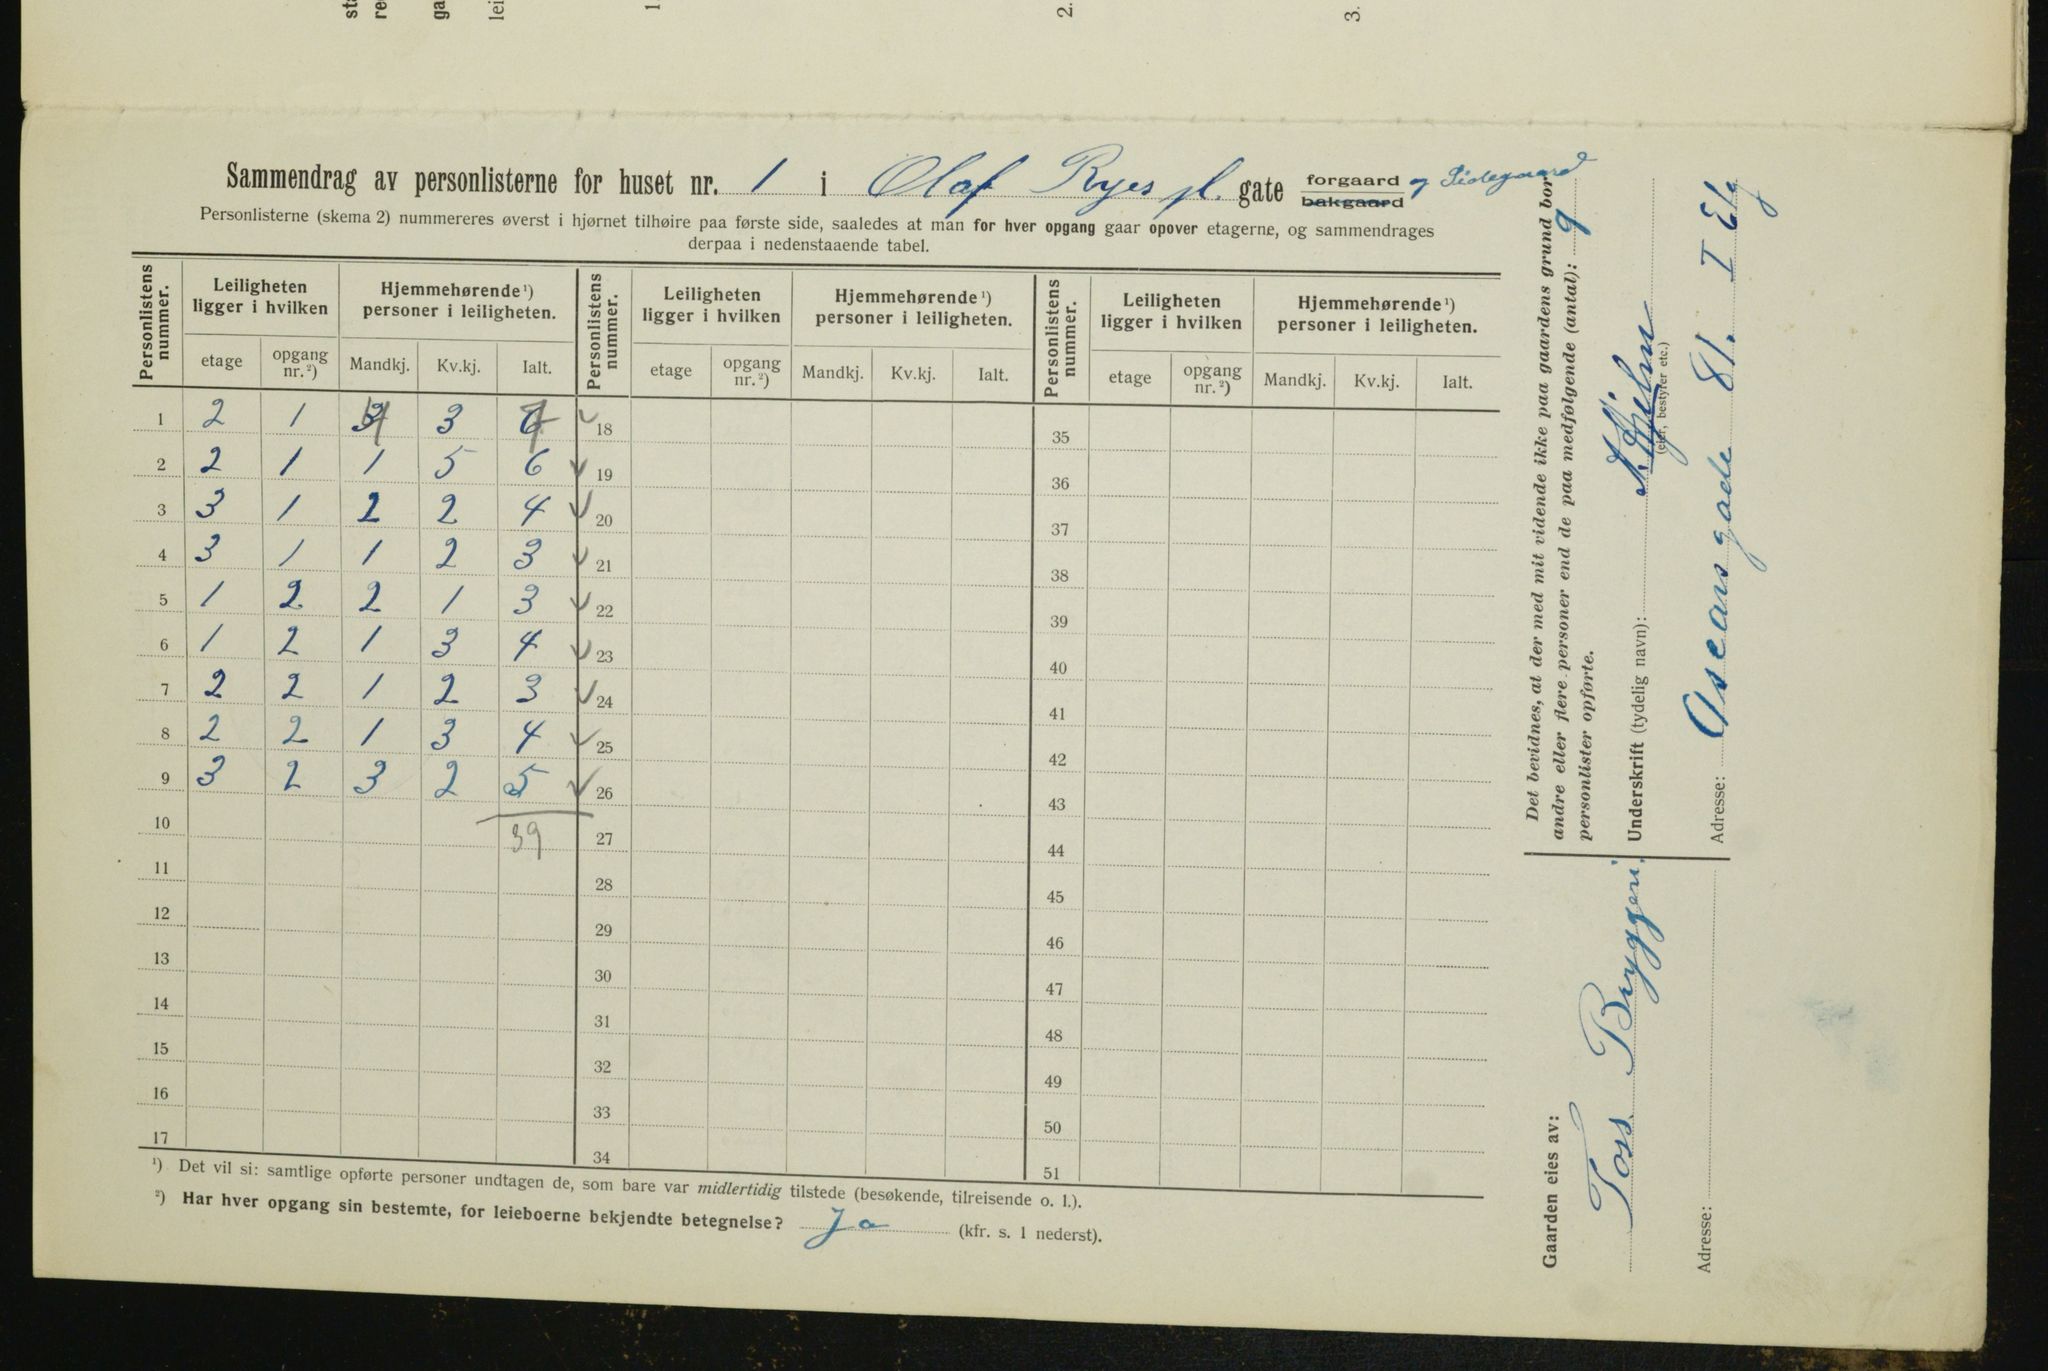 sta
re
ga
lei
1
2.
3.
Sammendrag av personlisterne for huset nr. 1 i Olaf Ryes pl. gate forgaard bakgaard og Sidegaard
Personlisterne (skema 2) nummereres øverst i hjørnet tilhøire paa første side, saaledes at man for hver opgang gaar opover etagerne, og sammendrages
derpaa i nedenstaaende tabel.
Personlistens nummer. Leiligheten ligger i hvilken Hjemmehørende ¹) personer i leiligheten. Personlistens nummer. Leiligheten ligger i hvilken Hjemmehørende ¹) personer i leiligheten. Personlistens nummer. Leiligheten ligger i hvilken Hjemmehørende ¹) personer i leiligheten.
etage opgang nr. ²) Mandkj. Kv.kj. Ialt. etage opgang nr. ²) Mandkj. Kv.kj. Ialt. etage opgang nr. ²) Mandkj. Kv.kj. Ialt.
1 2 1 4 3 7 18 35
2 2 1 1 5 6 19 36
3 3 1 2 2 4 20 37
4 3 1 1 2 3 21 38
5 1 2 2 1 3 22 39
6 1 2 1 3 4 23 40
7 2 2 1 2 3 24 41
8 2 2 1 3 4 25 42
9 3 2 3 2 5 26 43
10 39 27 44
11 28 45
12 29 46
13 30 47
14 31 48
15 32 49
16 33 50
17 34 51
¹) Det vil si: samtlige opførte personer undtagen de, som bare var midlertidig tilstede (besøkende, tilreisende o. l.).
²) Har hver opgang sin bestemte, for leieboerne bekjendte betegnelse? Ja (kfr. s. 1 nederst).
Det bevidnes, at der med mit vidende ikke paa gaardens grund bor
andre eller flere personer end de paa medfølgende (antal): 9
personlister opførte.
Underskrift (tydelig navn):
(eier, bestyrer etc.)
Adresse: Oscarsgade 81. I Etg
Gaarden eies av:
Foss Bryggeri
Adresse: